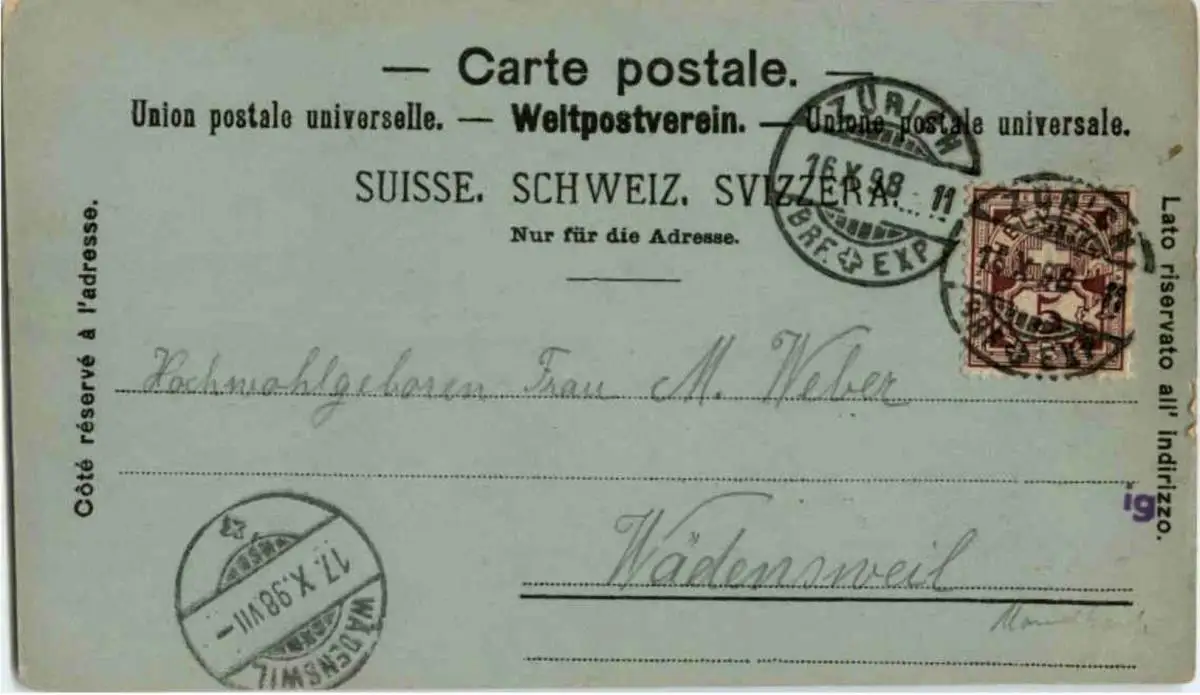 — Carte postale. —
Union postale universelle. — Weltpostverein. — Unione postale universale.
SUISSE. SCHWEIZ. SVIZZERA.
Nur für die Adresse.
Côté réservé à l'adresse.
Lato riservato all' indirizzo.
ZÜRICH
16.X.98. 11
BRF. EXP.
ZÜRICH
16.X.98 11
BRF. EXP.
5
Hochwohlgeboren Frau M. Weber
Wädensweil
ig
17.X.98.VII–
WÄDENSWIL